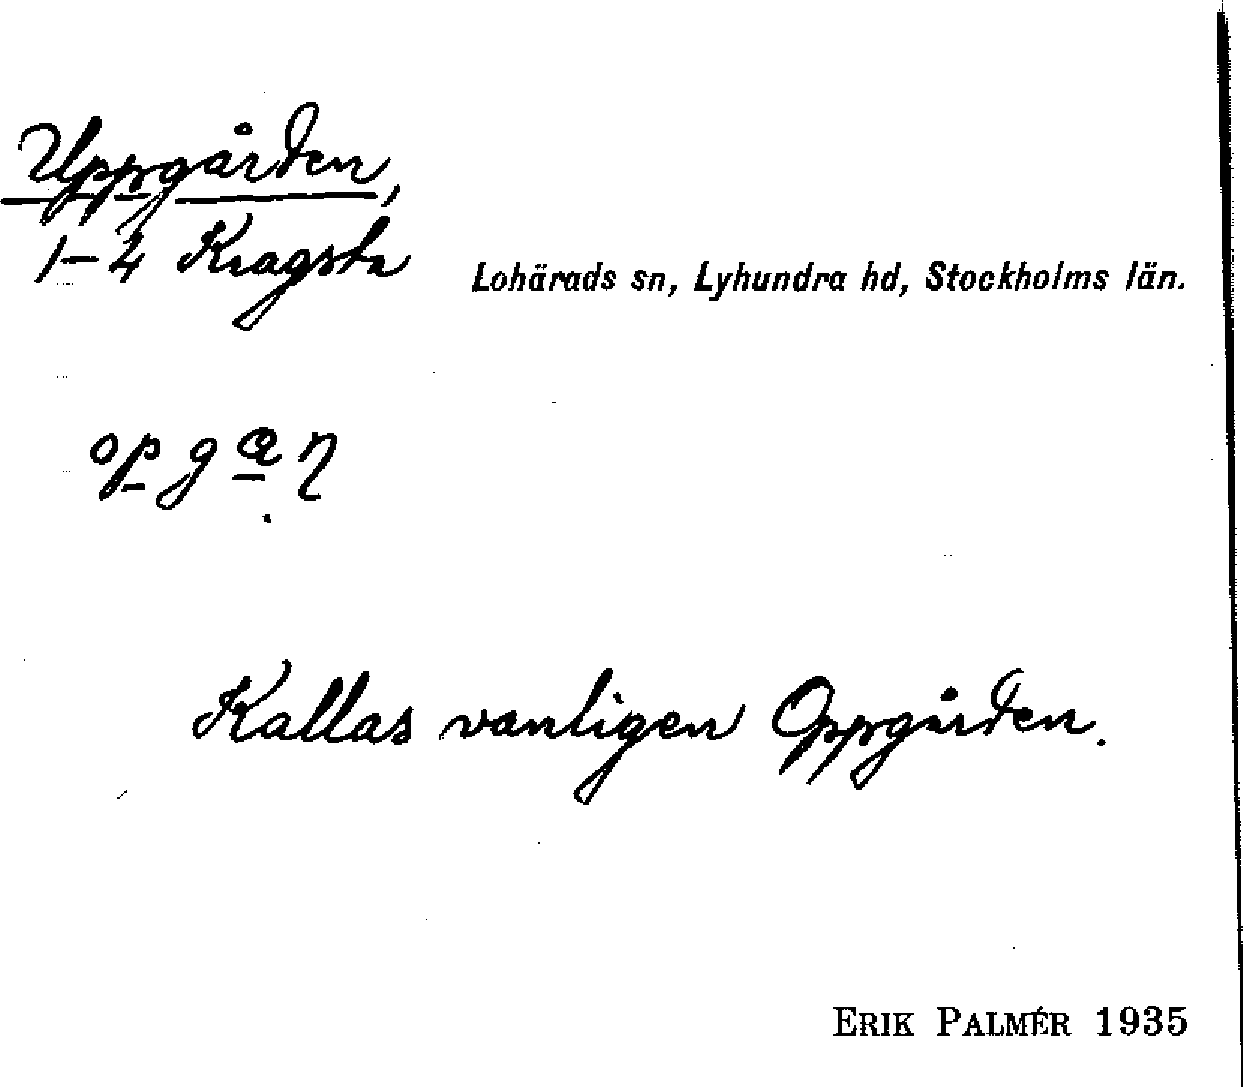 Uppgården,
1-4 Kragsta
Lohärads sn, Lyhundra hd, Stockholms län.
Kallas vanligen Oppgården.
ERIK PALMÉR 1935